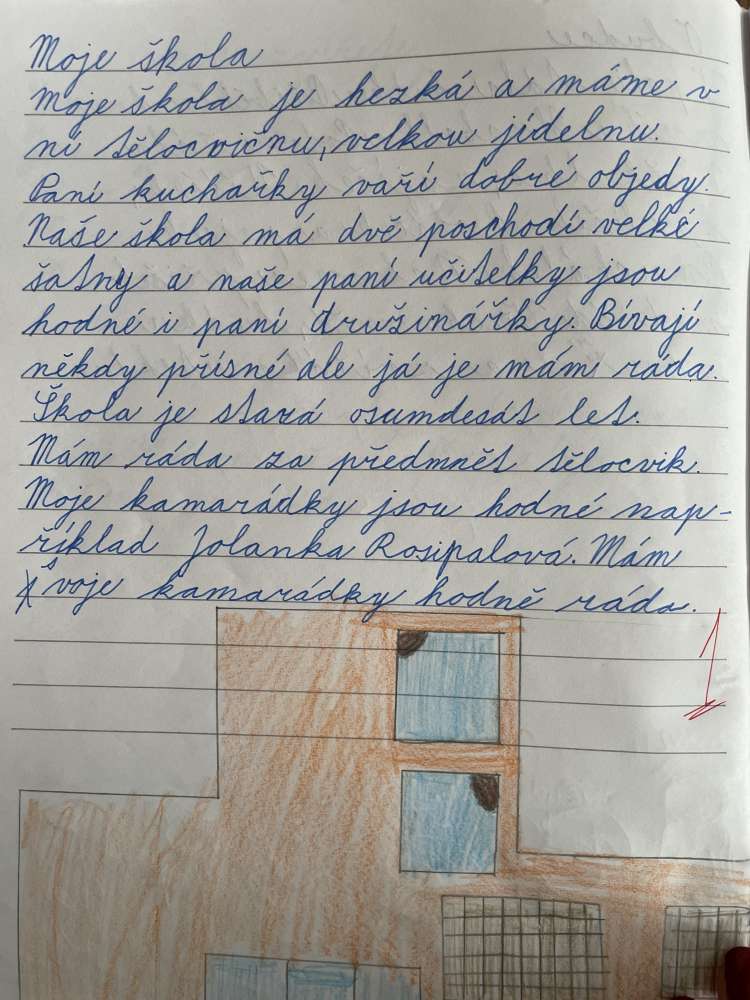 Moje škola
Moje škola je hezká a máme v
ní tělocvičnu, velkou jídelnu.
Paní kuchařky vaří dobré objedy.
Naše škola má dvě poschodí velké
šatny a naše paní učitelky jsou
hodné i paní družinářky. Bívají
někdy přísné ale já je mám ráda.
Škola je stará osumdesát let.
Mám ráda za předmnět tělocvik.
Moje kamarádky jsou hodné nap-
říklad Jolanka Rosipalová. Mám
svoje kamarádky hodně ráda.
1